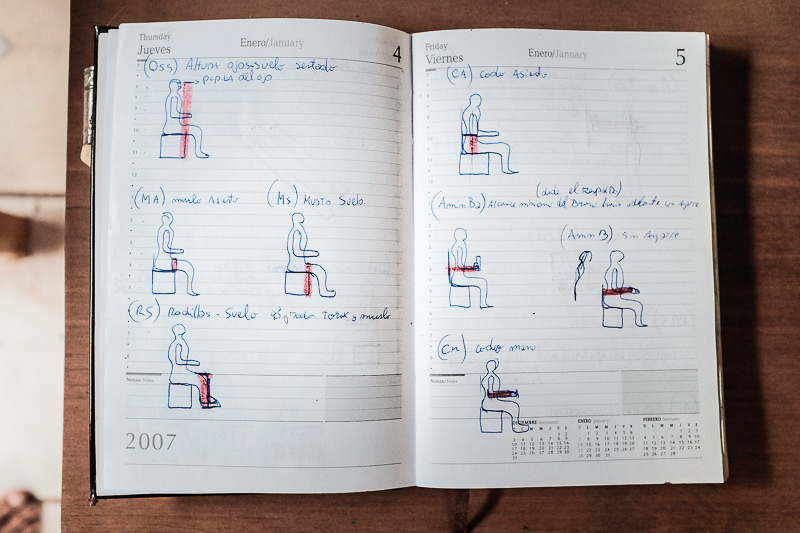 Thursday
Jueves
Enero/January
4
(OSS) Altura ojos-suelo sentado
→ pupila del ojo
(MA) muslo Asiento
(MS) Muslo Suelo.
(RS) Rodillas - Suelo grado torax y muslo
Notas/Notes
2007
Friday
Viernes
Enero/January
5
(CA) codo Asiento
(desde el respaldo)
(AmnB2) Alcance minimo del Brazo hacia adelante con Agarre
(AmnB) Sin Agarre
(CM) codo mano
Notas/Notes
DICIEMBRE December
ENERO January
FEBRERO February